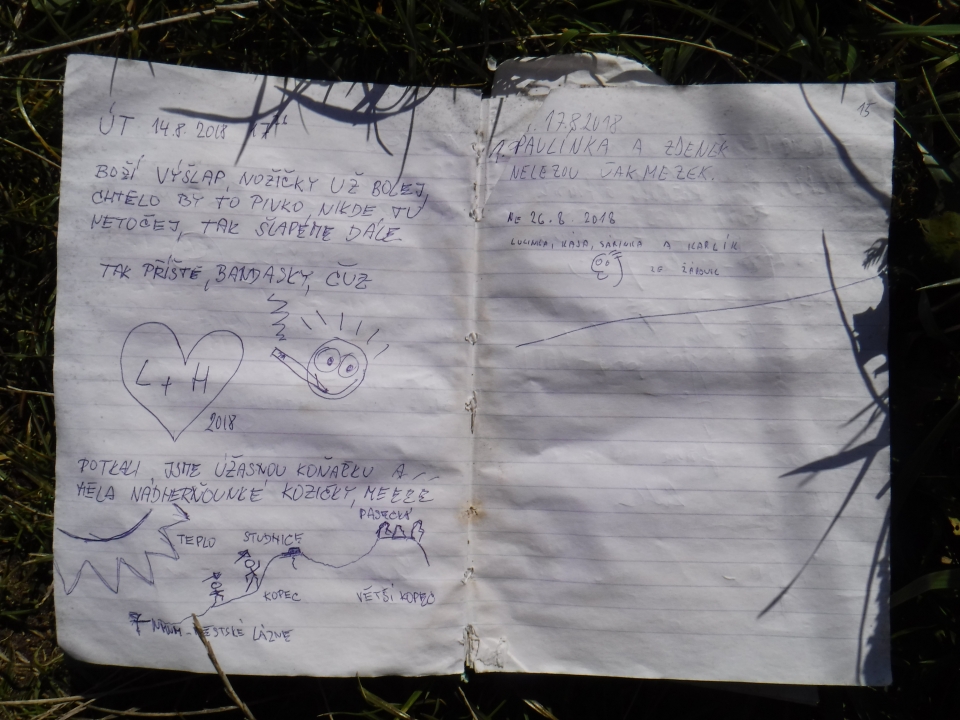 ÚT 14.8. 2018 17
BOŽÍ VÝŠLAP, NOŽIČKY UŽ BOLEJ,
CHTĚLO BY TO PIVKO, NIKDE TU
NETOČEJ, TAK ŠLAPEME DÁLE
TAK PŘÍŠTĚ, BANDASKY, ČUZ
L + H
2018
POTKALI JSME ÚŽASNOU KOŇAČKU A
MĚLA NÁDHERŇOUNKÉ KOZIČKY, MEEZE
TEPLO STUDNICE PASEČKY
KOPEC VĚTŠÍ KOPEC
MĚSTSKÉ LÁZNE
15
17.8 2018
PAULINKA A ZDENĚK
NELEZOU JAK MEZEK.
NE 26.8. 2018
LUCINKA, KÁJA, SÁRINKA A KARLÍK
ZE